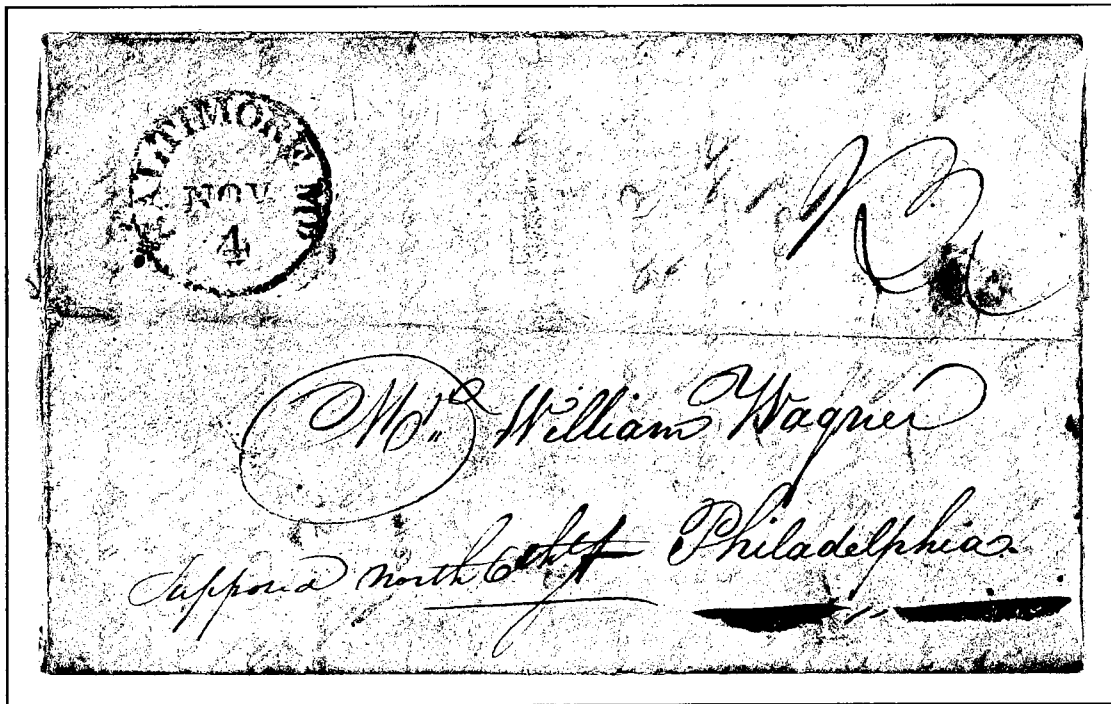 BALTIMORE MD
NOV
4
Mr. William Wagner
Philadelphia
Supposed north 6th St